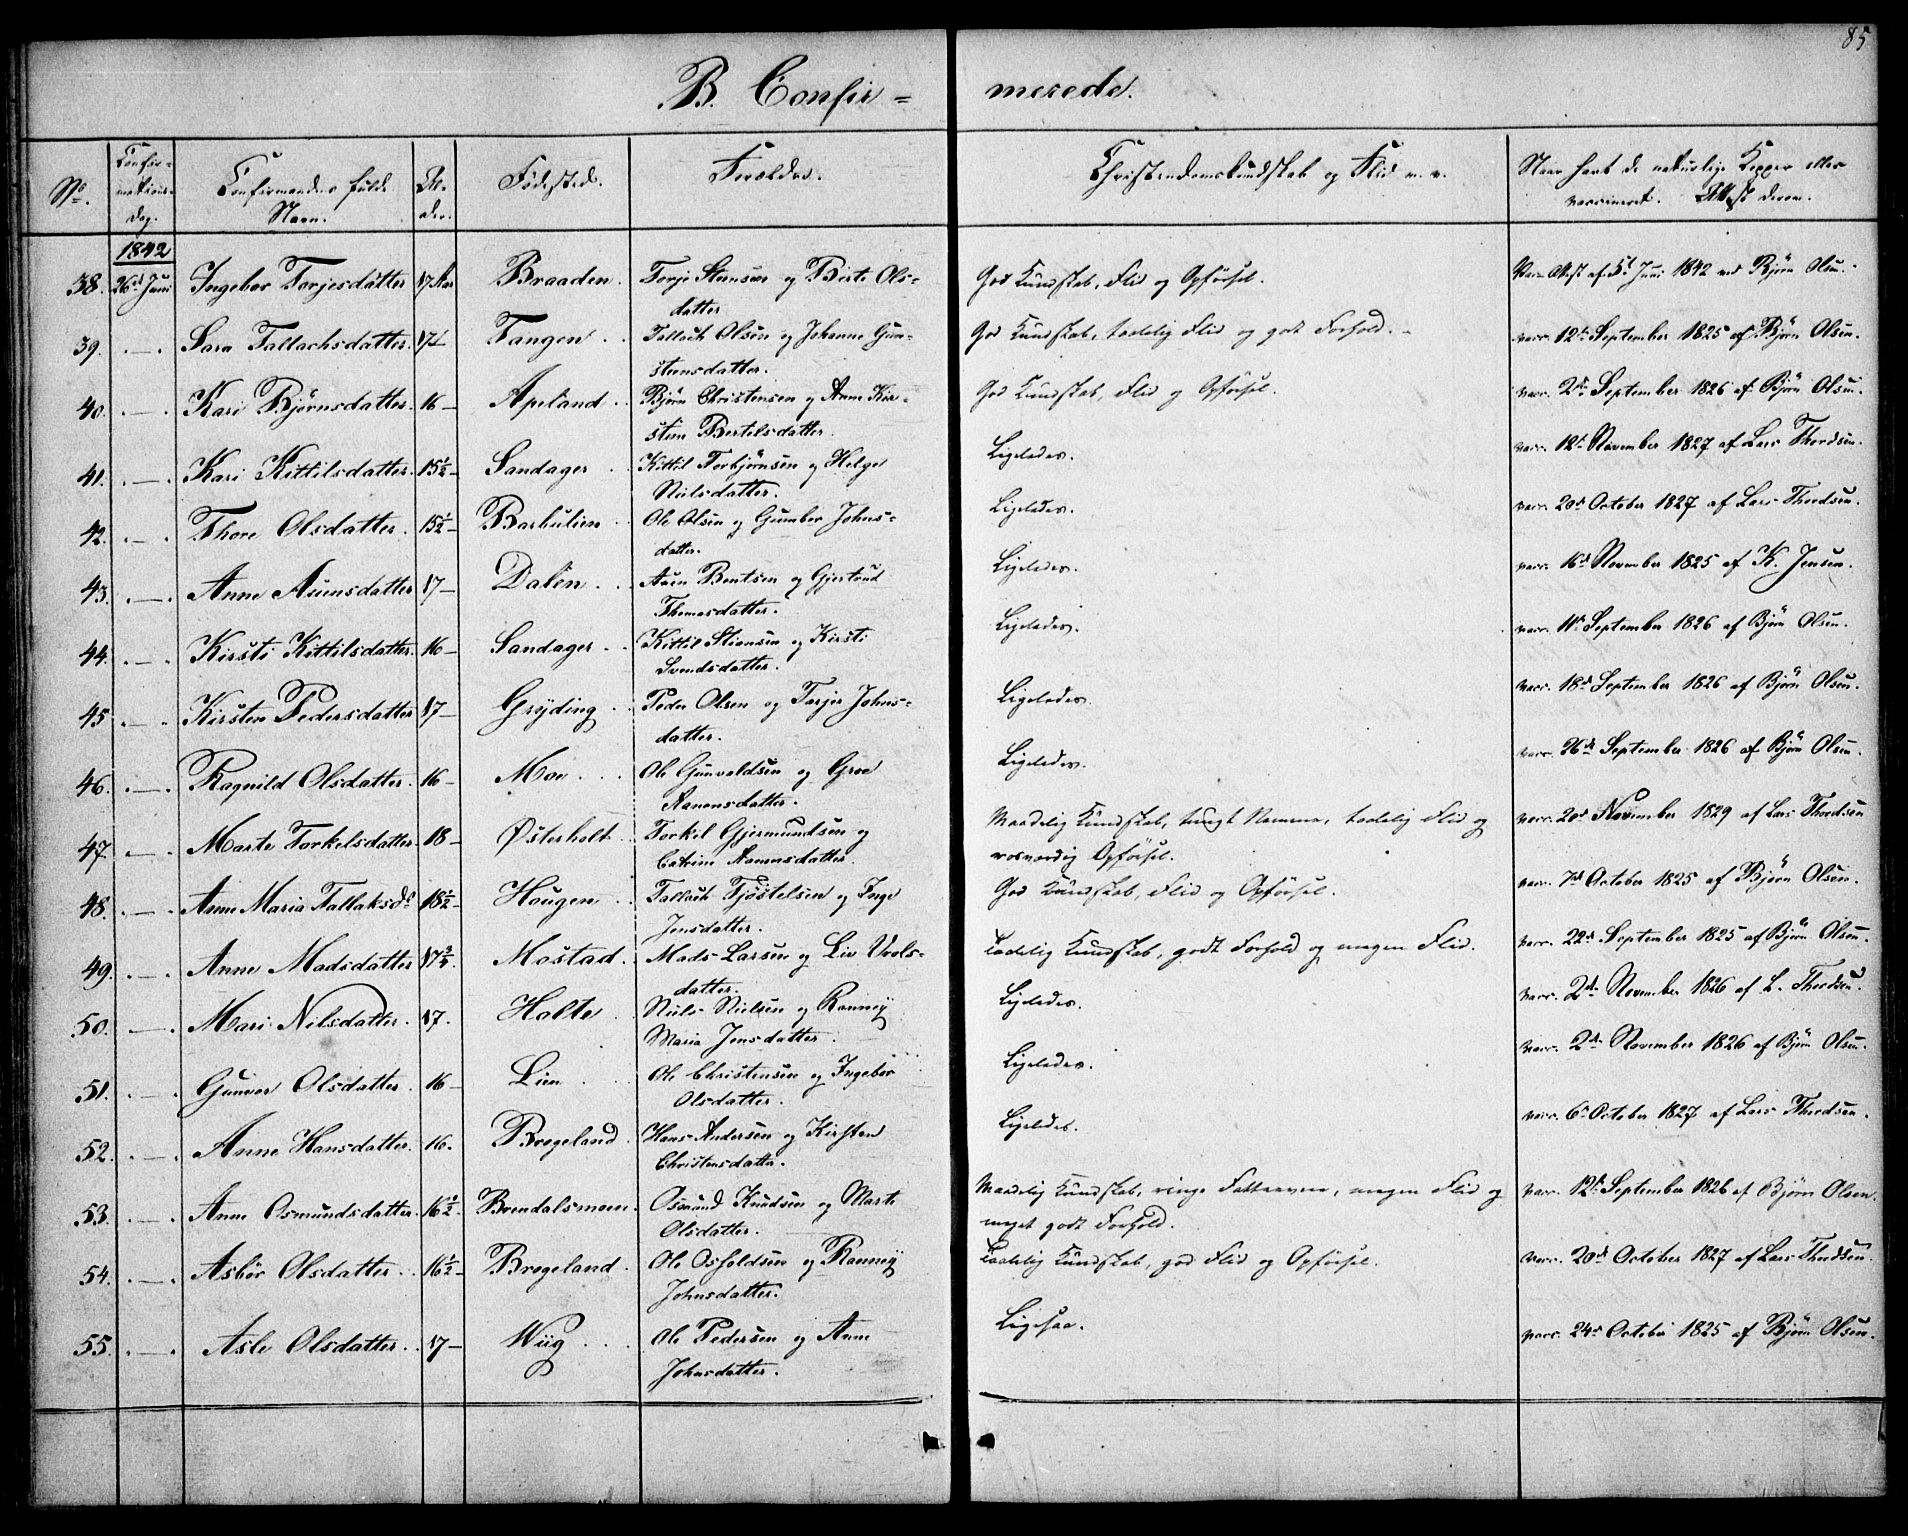 85
B. Confir= merede.
No. Confirmations Dag. Confirmandens fulde Navn. Alder. Fødested. Forældre. Christendomskundskab og Flid m. v. Naar havt de naturlige Kopper eller vaccineret. Attest derom.
1842
38. 26d Juni Ingebor Torjesdatter 17 Aar Braaden. Torje Stensen og Berte Ols- God Kundskab, Flid og Opførsel. Juni 1842 ved Bjørn Olsen.
datter
39. Sara Tallachsdatter. 17 Tangen Tallach Olsen og Johanne Gun- God Kundskab, taalelig Flid og godt Forhold. vacc. 12te September 1825 af Bjørn Olsen.
stensdatter.
40. Kari Bjørnsdatter. 16 Apeland Bjørn Christensen og Anne Kir- God Kundskab, Flid og Opførsel. vacc. 2den September 1826 af Bjørn Olsen.
sten Bertelsdatter.
41. Kari Kittilsdatter. 15½ Sandager Kittil Torbjørnsen og Helge Ligeledes. vacc. 12te November 1827 af Lars Thordsen.
Nielsdatter.
42. Thore Olsdatter. 15½ Barbulien Ole Olsen og Gunbor Johns- Ligeledes. vacc. 20de October 1827 af Lars Thordsen.
datter.
43. Anne Auensdatter 17 Dalen Auen Bentsen og Gjertrud Ligeledes. vacc. 16de November 1825 af K. Jensen.
Thomasdatter.
44. Kirsti Kittilsdatter. 16 Sandager Kittil Stiansen og Kirsti Ligeledes. vacc. 11te September 1826 af Bjørn Olsen.
Svendsdatter.
45. Kirsten Pedersdatter 17 Gryding Peder Olsen og Tarjer Johns- Ligeledes. vacc. 18de September 1826 af Bjørn Olsen.
datter.
46. Ragnild Olsdatter. 16 Moe Ole Gunvaldsen og Groe Ligeledes. vacc. 26de September 1826 af Bjørn Olsen.
Aanonsdatter.
47. Marte Torkelsdatter 18 Østerholt Torkil Gjermundsen og Maadelig Kundskab, tungt Nemme, taalelig Flid og vacc. 20de November 1829 af Lars Thordsen
Catrine Aanonsdatter. rosværdig Opførsel.
48. Anne Maria Tallaksdr 18½ Hougen Tallach Tjøstelsen og Inge God Kundskab, Flid og Opførsel. vacc. 7de October 1825 af Bjørn Olsen.
Jensdatter.
49. Anne Madsdatter 17 Mostad. Mads Larsen og Liv Vrols- Taalelig Kundskab, godt Forhold og megen Flid. vacc. 22de September 1825 af Bjørn Olsen.
datter.
50. Mari Nilsdatter. 17. Holte Niels Nielsen og Ranney Ligeledes. vacc. 2den November 1826 af L. Thordsen.
Maria Jensdatter.
51. Gunvor Olsdatter. 16 Lien Ole Christensen og Ingebor Ligeledes. vacc. 2den November 1826 af Bjørn Olsen.
Olsdatter.
52. Anne Hansdatter. 16. Brogeland Hans Andersen og Kirsten Ligeledes. vacc. 6te October 1827 af Lars Thordsen.
Christensdatter.
53. Anne Osmundsdatter. 16½ Brendalsmoen. Osmund Knudsen og Marte Maadelig Kundskab, ringe Fatteevne, megen Flid og vacc. 12te September 1826 af Bjørn Olsen.
Olsdatter. meget godt Forhold.
54. Asbør Olsdatter 16½ Brogeland. Ole Osfoldsen og Ranney Taalelig Kundskab, god Flid og Opførsel. vacc. 20de October 1827 af Lars Thordsen.
Johnsdatter.
55. Asle Olsdatter 17 Wiig Ole Pedersen og Anne Ligesaa. vacc. 24de October 1825 af Bjørn Olsen.
Johnsdatter.